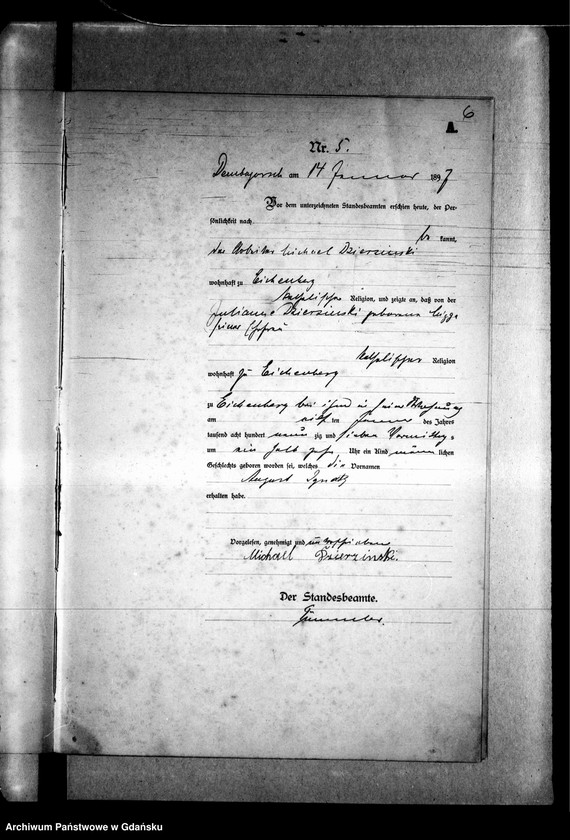 6
A.
Nr. 5.
am 14 Januar 1897
Vor dem unterzeichneten Standesbeamten erschien heute, der Per-
sönlichkeit nach
be kannt,
der Arbeiter Michael Dzierzinski
wohnhaft zu Eichenberg
katholischer Religion, und zeigte an, daß von der
Julianne Dzierzinski geborene
seiner Ehefrau
katholischer Religion
wohnhaft zu Eichenberg
zu Eichenberg bei ihm in seiner Wohnung
am elf ten Januar des Jahres
tausend acht hundert neun zig und sieben Vormittags
um ein halb Uhr ein Kind männ lichen
Geschlechts geboren worden sei, welches die Vornamen
August
erhalten habe.
Vorgelesen, genehmigt und unterschrieben
Michael Dzierzinski.
Der Standesbeamte.
Archiwum Państwowe w Gdańsku